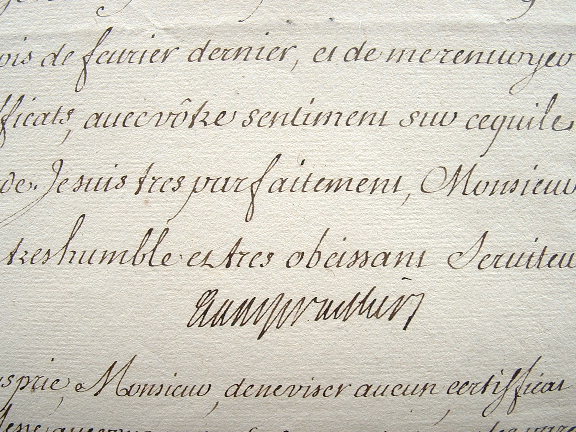 ois de feurier dernier, et de me renuoyer
fficats, auec vôtre sentiment sur ce qui le
de. Je suis tres parfaitement, Monsieur,
tres humble et tres obeissant Seruiteur
us prie, Monsieur, de ne viser aucun certifficat